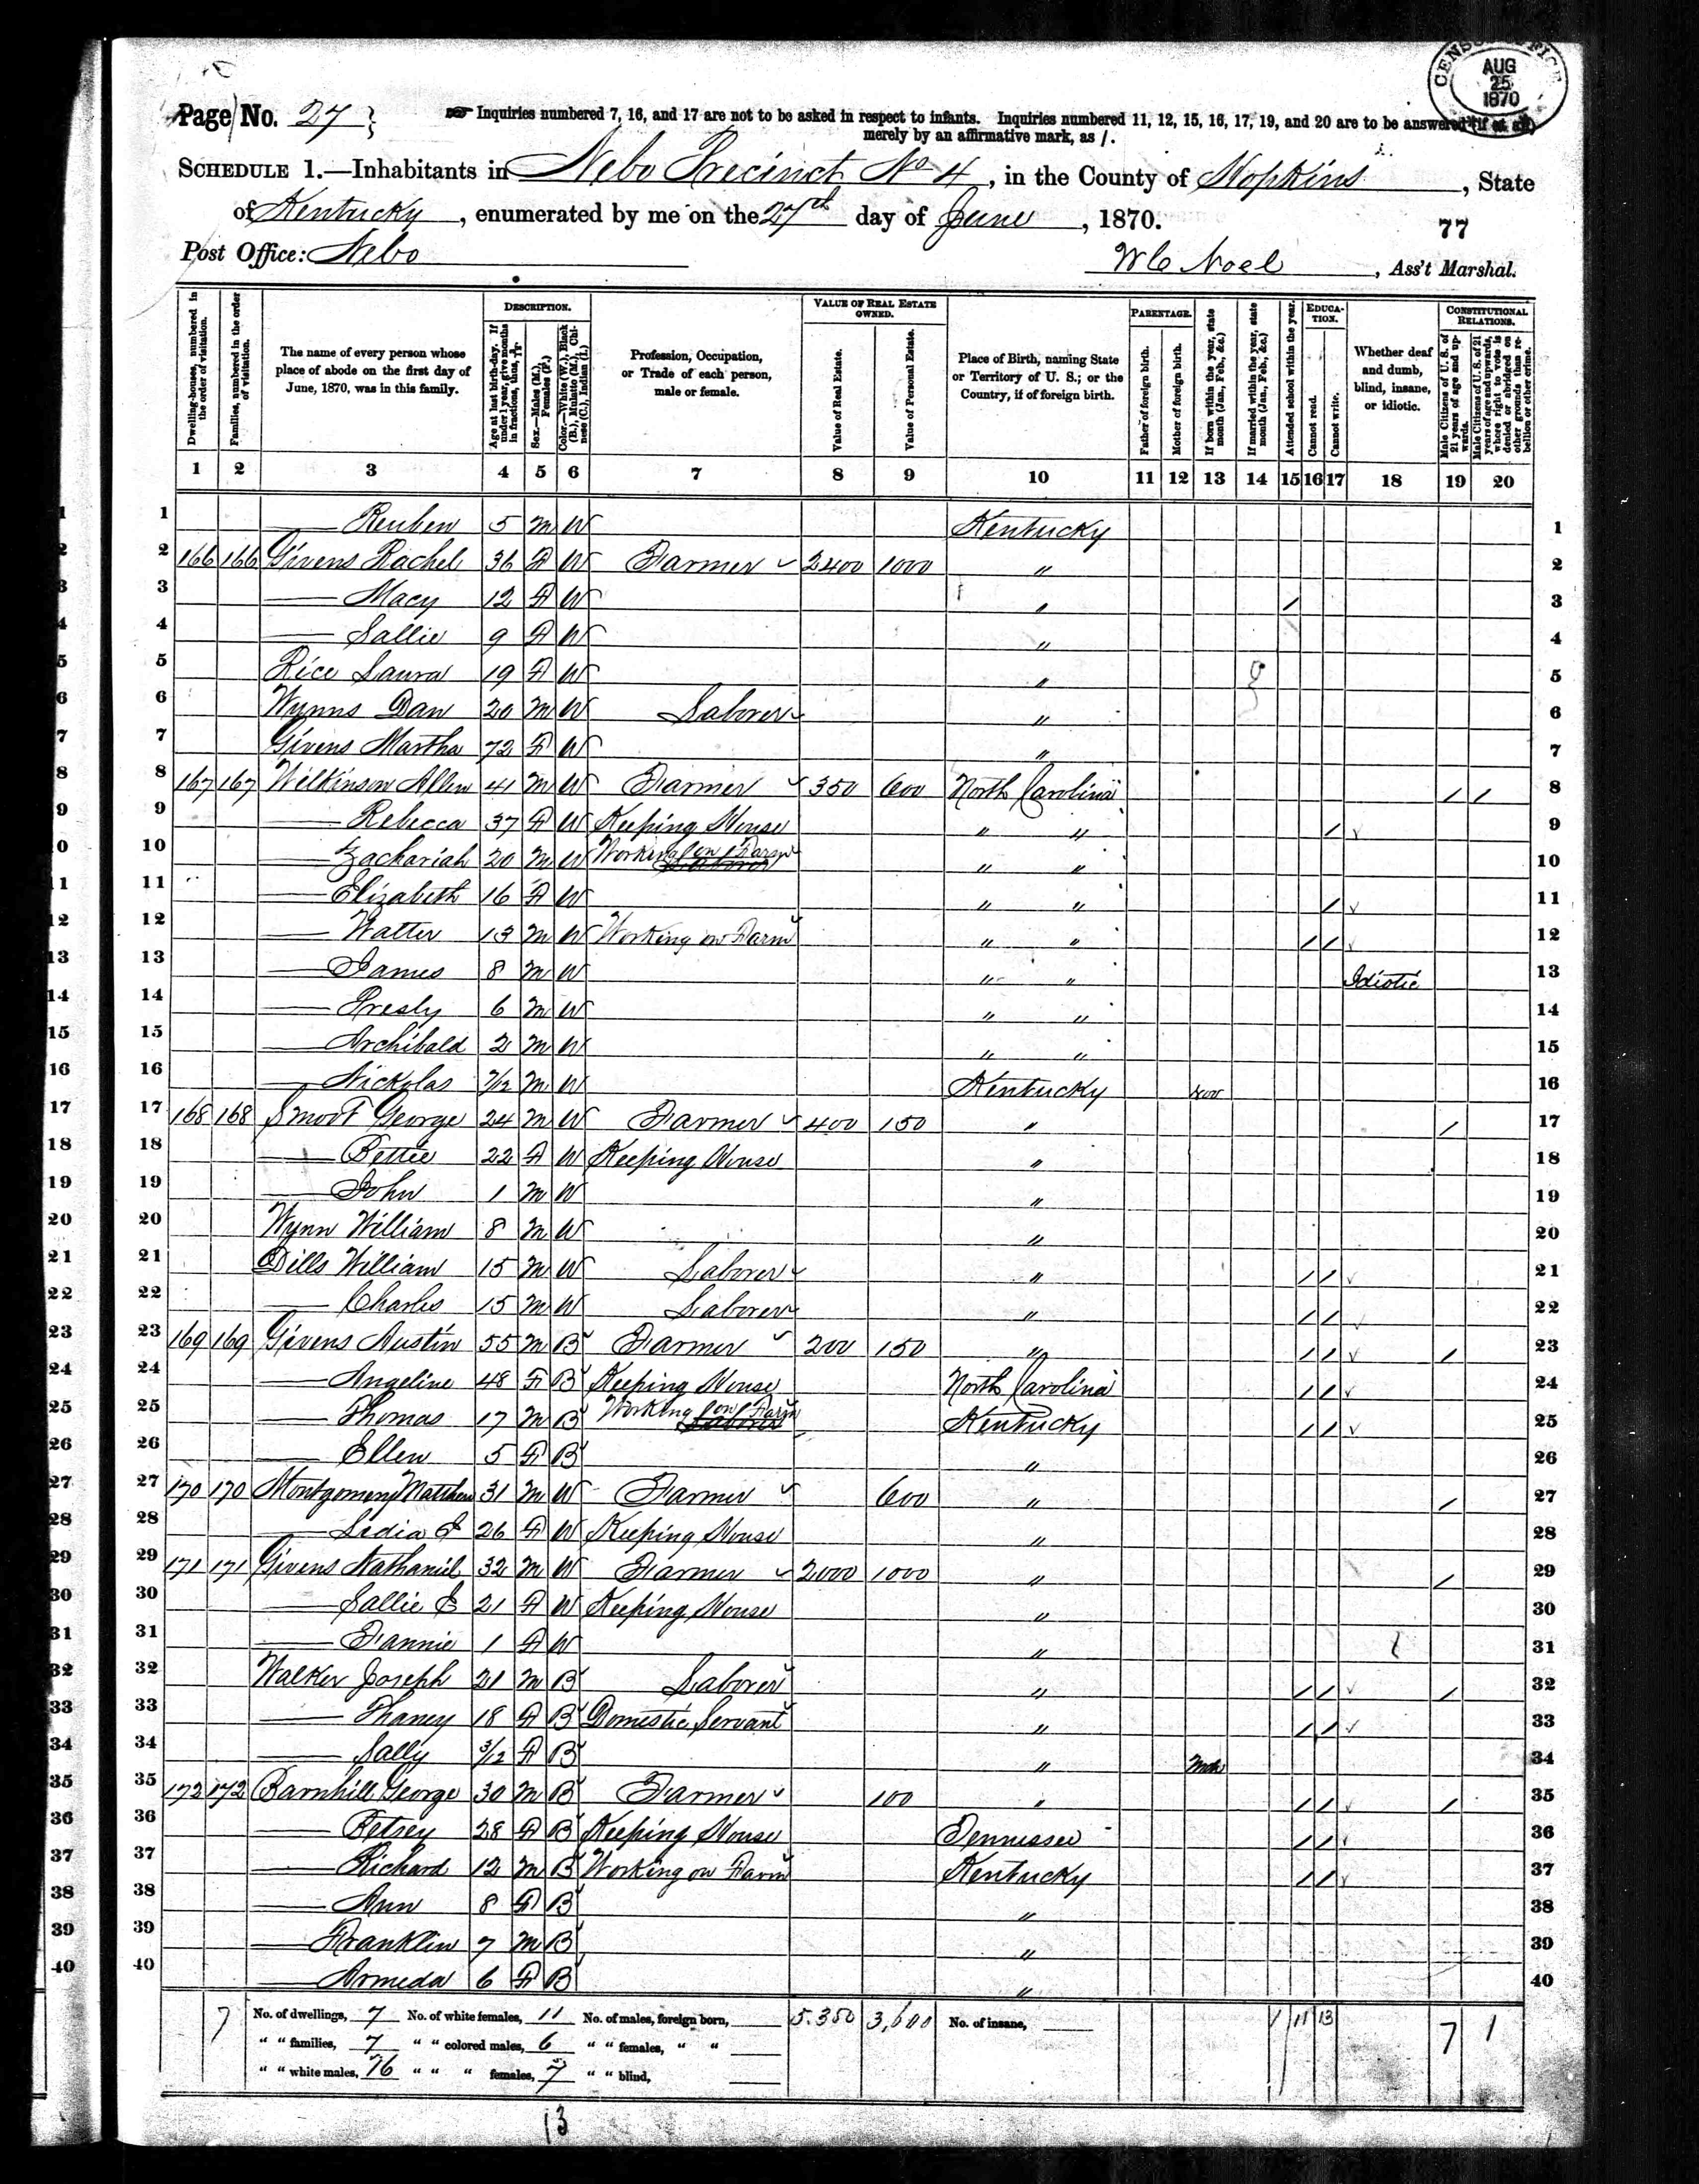 CENSUS OFFICE
AUG
25
1870
Page No. 27
Inquiries numbered 7, 16, and 17 are not to be asked in respect to infants. Inquiries numbered 11, 12, 15, 16, 17, 19, and 20 are to be answered (if at all)
merely by an affirmative mark, as /.
SCHEDULE 1.—Inhabitants in Nebo Precinct No 4, in the County of Hopkins, State
of Kentucky, enumerated by me on the 27th day of June, 1870.
77
Post Office: Nebo
W C Noel, Ass't Marshal.
Dwelling-houses, numbered in the order of visitation.
Families, numbered in the order of visitation.
The name of every person whose place of abode on the first day of June, 1870, was in this family.
DESCRIPTION.
Age at last birth-day. If under 1 year, give months in fractions, thus, 3/12.
Sex.—Males (M.), Females (F.)
Color.—White (W.), Black (B.), Mulatto (M.), Chinese (C.), Indian (I.)
Profession, Occupation, or Trade of each person, male or female.
VALUE OF REAL ESTATE OWNED.
Value of Real Estate.
Value of Personal Estate.
Place of Birth, naming State or Territory of U. S.; or the Country, if of foreign birth.
PARENTAGE.
Father of foreign birth.
Mother of foreign birth.
If born within the year, state month (Jan., Feb., &c.)
If married within the year, state month (Jan., Feb., &c.)
Attended school within the year.
EDUCATION.
Cannot read.
Cannot write.
Whether deaf and dumb, blind, insane, or idiotic.
CONSTITUTIONAL RELATIONS.
Male Citizens of U. S. of 21 years of age and upwards.
Male Citizens of U. S. of 21 years of age and upwards, whose right to vote is denied or abridged on other grounds than rebellion or other crime.
1 2 3 4 5 6 7 8 9 10 11 12 13 14 15 16 17 18 19 20
1 — Reuben 5 M W Kentucky 1
2 166 166 Givens Rachel 36 F W Farmer 2400 1000 " 2
3 — Macy 12 F W " / 3
4 — Sallie 9 F W " 4
5 Rice Laura 19 F W " 5
6 Wynns Dan 20 M W Laborer " 6
7 Givens Martha 72 F W " 7
8 167 167 Wilkinson Allen 41 M W Farmer 350 600 North Carolina / / 8
9 — Rebecca 37 F W Keeping House " " / 9
10 — Zachariah 20 M W Working on Farm " " 10
11 — Elizabeth 16 F W " " / 11
12 — Walter 13 M W Working on Farm " " / / 12
13 — James 8 M W " " Idiotic 13
14 — Presly 6 M W " " 14
15 — Archibald 2 M W " " 15
16 — Nickolas 7/12 M W Kentucky 16
17 168 168 Smoot George 24 M W Farmer 400 150 " / 17
18 — Bettie 22 F W Keeping House " 18
19 — John 1 M W " 19
20 Wynn William 8 M W " 20
21 Dills William 15 M W Laborer " / / 21
22 — Charles 15 M W Laborer " / / 22
23 169 169 Givens Austin 55 M B Farmer 200 150 " / / / 23
24 — Angeline 48 F B Keeping House North Carolina / / 24
25 — Thomas 17 M B Working on Farm Kentucky / / 25
26 — Ellen 5 F B " 26
27 170 170 Montgomery Matthew 31 M W Farmer 600 " / 27
28 — Lidia J 26 F W Keeping House " 28
29 171 171 Givens Nathaniel 32 M W Farmer 2000 1000 " / 29
30 — Sallie E 21 F W Keeping House " 30
31 — Fannie 1 F W " 31
32 Walker Joseph 21 M B Laborer " / / / 32
33 — Thaney 18 F B Domestic Servant " / / 33
34 — Sally 3/12 F B " Mch 34
35 172 172 Barnhill George 30 M B Farmer 100 " / / / 35
36 — Betsey 28 F B Keeping House Tennessee / / 36
37 — Richard 12 M B Working on Farm Kentucky / / 37
38 — Ann 8 F B " 38
39 — Franklin 7 M B " 39
40 — Armeda 6 F B " 40
7 No. of dwellings, 7 No. of white females, 11 No. of males, foreign born, 5.350 3,600 No. of insane, 1 11 13 7 1
" " families, 7 " " colored males, 6 " " females, " "
" " white males, 16 " " " females, 7 " " blind,
13